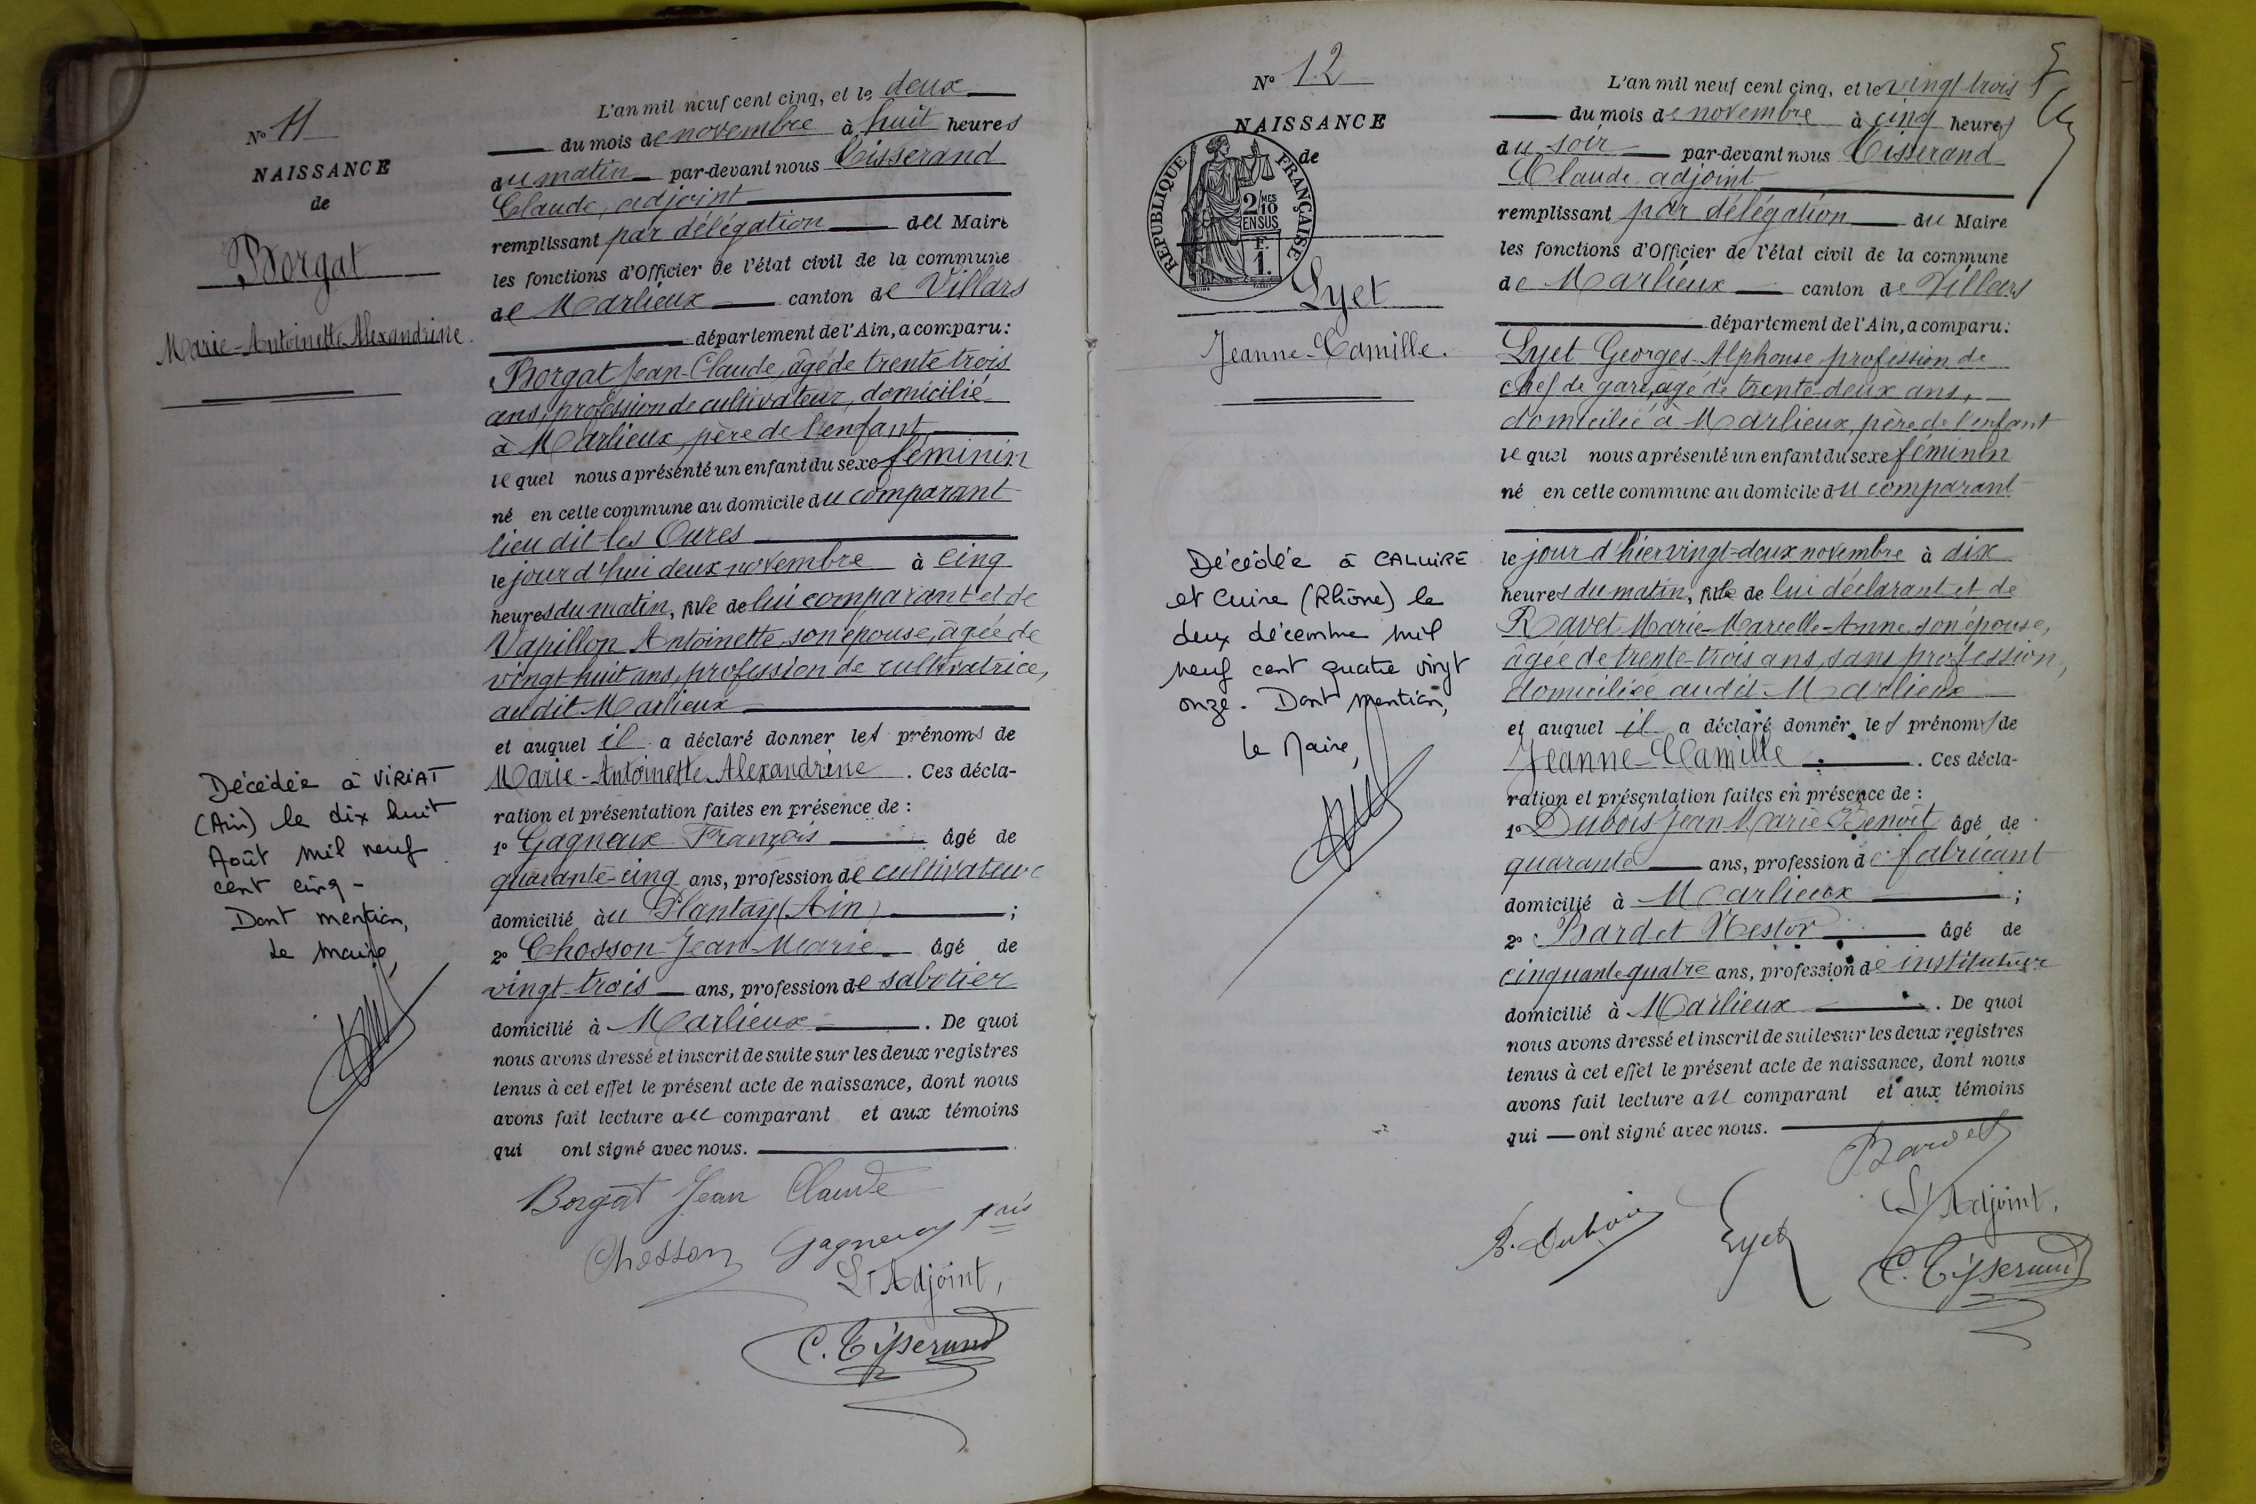 N° 11
NAISSANCE
de
Borgat
Marie-Antoinette Alexandrine.
Décédée à VIRIAT
(Ain) le dix huit
Août mil neuf
cent cinq -
Dont mention,
Le Maire,
L'an mil neuf cent cinq, et le deux
du mois de novembre à huit heures
du matin par-devant nous Tisserand
Claude, adjoint
remplissant par délégation du Maire
les fonctions d'Officier de l'état civil de la commune
de Marlieux canton de Villars
département de l'Ain, a comparu:
Borgat Jean-Claude, âgé de trente trois
ans, profession de cultivateur, domicilié
à Marlieux, père de l'enfant
lequel nous a présenté un enfant du sexe féminin
né en cette commune au domicile du comparant
lieu dit les Oures
le jour d'hui deux novembre à cinq
heures du matin, fille de lui comparant et de
Vapillon Antoinette, son épouse, âgée de
vingt huit ans, profession de cultivatrice,
audit Marlieux
et auquel il a déclaré donner les prénoms de
Marie-Antoinette Alexandrine. Ces décla-
ration et présentation faites en présence de :
1° Gagneux François âgé de
quarante-cinq ans, profession de cultivateur
domicilié au Plantay (Ain) ;
2° Chosson Jean-Marie âgé de
vingt-trois ans, profession de sabotier
domicilié à Marlieux. De quoi
nous avons dressé et inscrit de suite sur les deux registres
tenus à cet effet le présent acte de naissance, dont nous
avons fait lecture au comparant et aux témoins
qui ont signé avec nous.
Borgat Jean Claude
Chosson Gagneux fois
L'Adjoint,
C. Tisserand
N° 12
NAISSANCE
de
RÉPUBLIQUE FRANÇAISE
2/10 MES
EN SUS
F.
1.
Lyet
Jeanne-Camille.
Décédée à CALUIRE
et Cuire (Rhône) le
deux décembre mil
neuf cent quatre vingt
onze. Dont mention,
Le Maire,
5
L'an mil neuf cent cinq, et le vingt trois
du mois de novembre à cinq heures
du soir par-devant nous Tisserand
Claude adjoint
remplissant par délégation du Maire
les fonctions d'Officier de l'état civil de la commune
de Marlieux canton de Villars
département de l'Ain, a comparu:
Lyet Georges-Alphonse profession de
chef de gare, âgé de trente-deux ans,
domicilié à Marlieux, père de l'enfant
lequel nous a présenté un enfant du sexe féminin
né en cette commune au domicile du comparant
le jour d'hier vingt-deux novembre à dix
heures du matin, fille de lui déclarant et de
Ravet Marie-Marcelle-Anne, son épouse,
âgée de trente-trois ans, sans profession,
domiciliée audit Marlieux
et auquel il a déclaré donner les prénoms de
Jeanne-Camille. Ces décla-
ration et présentation faites en présence de :
1° Dubois Jean Marie Benoît âgé de
quarante ans, profession de fabricant
domicilié à Marlieux ;
2° Bardet Nestor âgé de
cinquante quatre ans, profession de instituteur
domicilié à Marlieux. De quoi
nous avons dressé et inscrit de suite sur les deux registres
tenus à cet effet le présent acte de naissance, dont nous
avons fait lecture au comparant et aux témoins
qui ont signé avec nous.
Bardet
B. Dubois Lyet L'Adjoint,
C. Tisserand